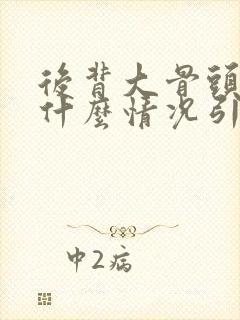 後背大骨頭
什麼情況引
中2病